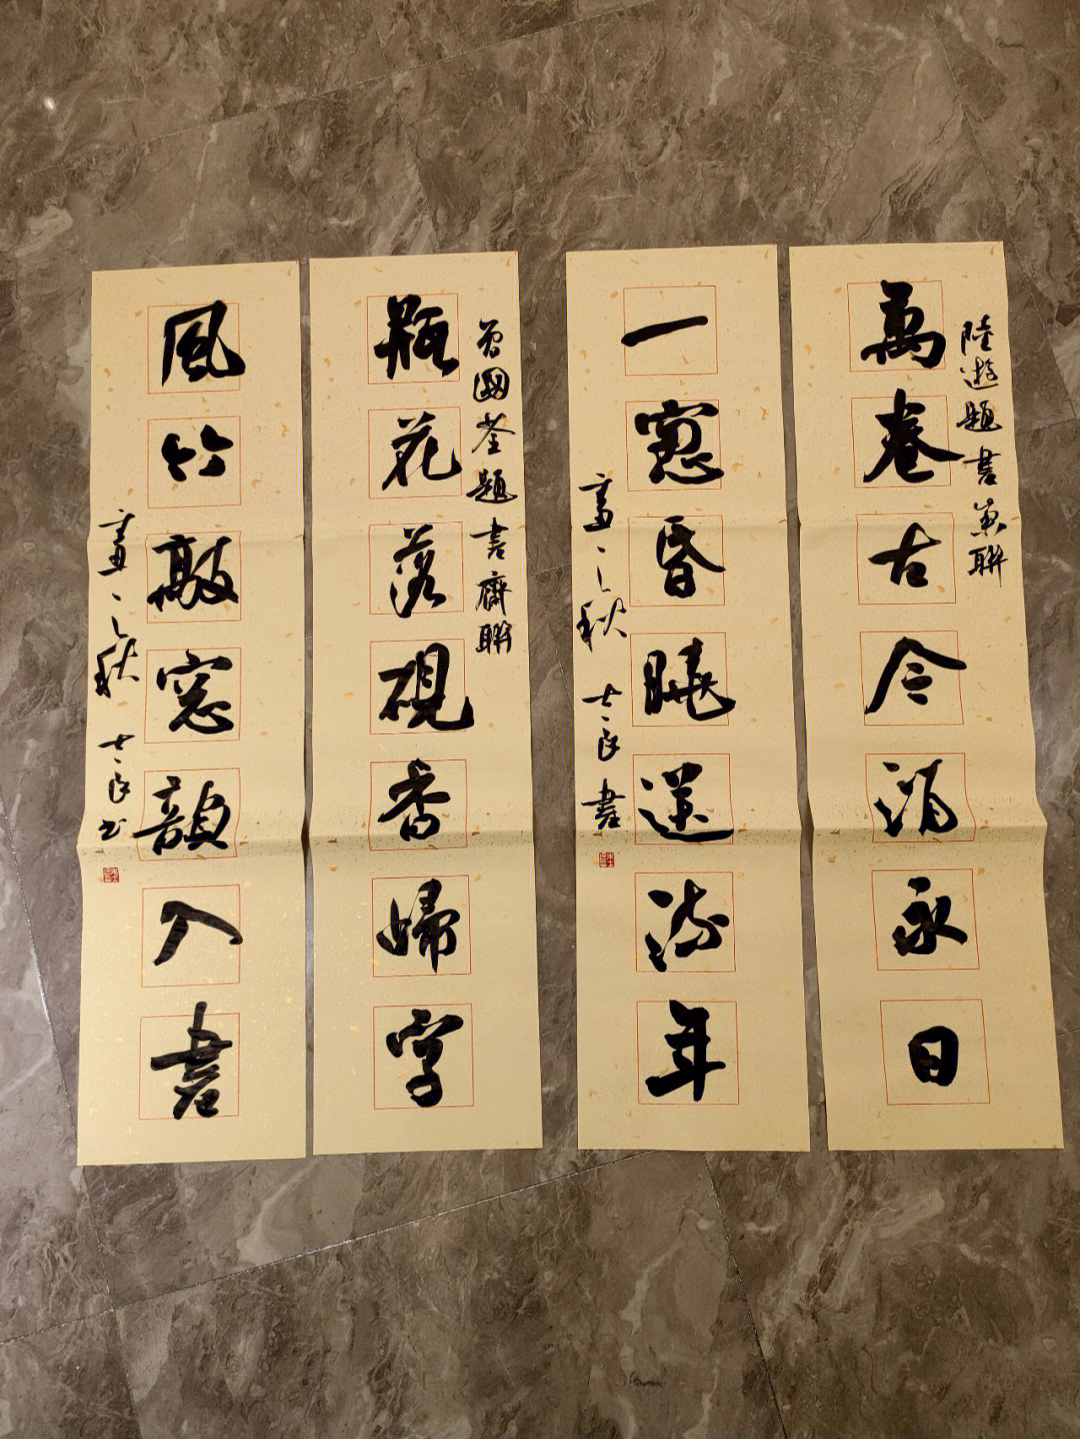 陸遊題書巢聯
萬卷古今消永日
一窓昏曉送流年
士良書
曾國荃題書齋聯
瓶花落硯香歸字
風竹敲窓韻入書
士良书